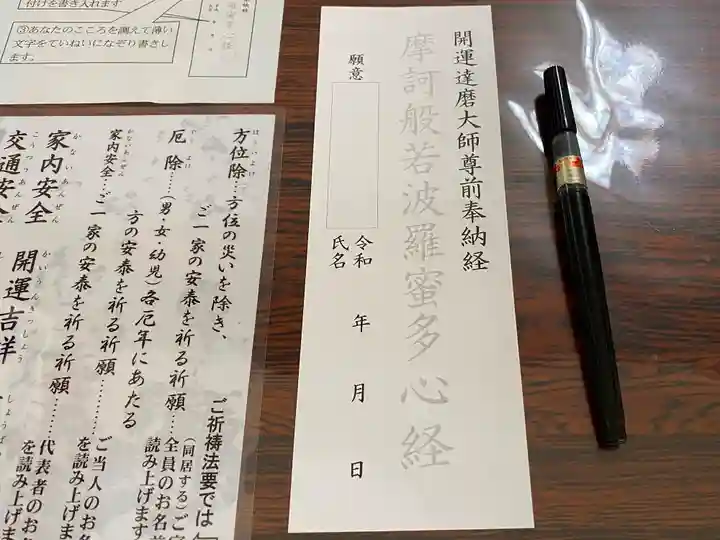 付けを書き入れます
③あなたのこころを調えて薄い
文字をていねいになぞり書きし
ます。
開運達磨大師尊前奉納経
摩訶般若波羅蜜多心経
願意
令和 年 月 日
氏名
方位除…方位の災いを除き、
ご一家の安泰を祈る祈願…
厄除……(男・女・幼児)各厄年にあたる
方の安泰を祈る祈願……
家内安全…ご一家の安泰を祈る祈願……
家内安全
交通安全
開運吉祥
ご祈祷法要では
(同居する)ご家
全員のお名前
を読み上げます
ご当人のお名
を読み上げま
代表者のお名
を読み上げま